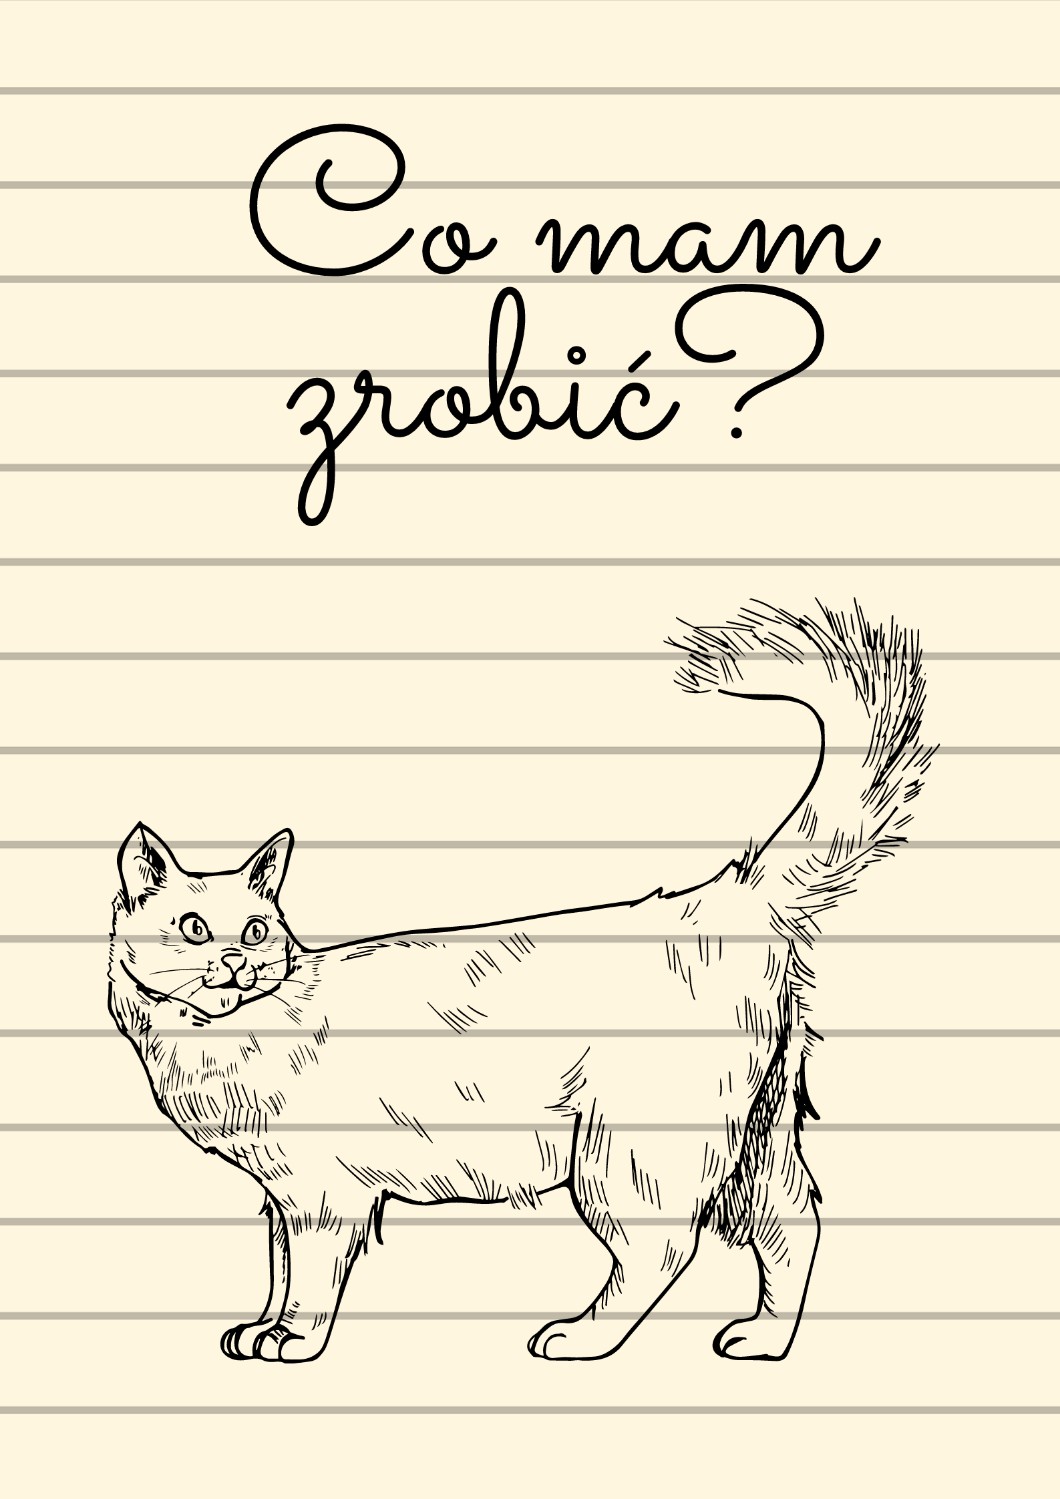 Co mam
zrobić?